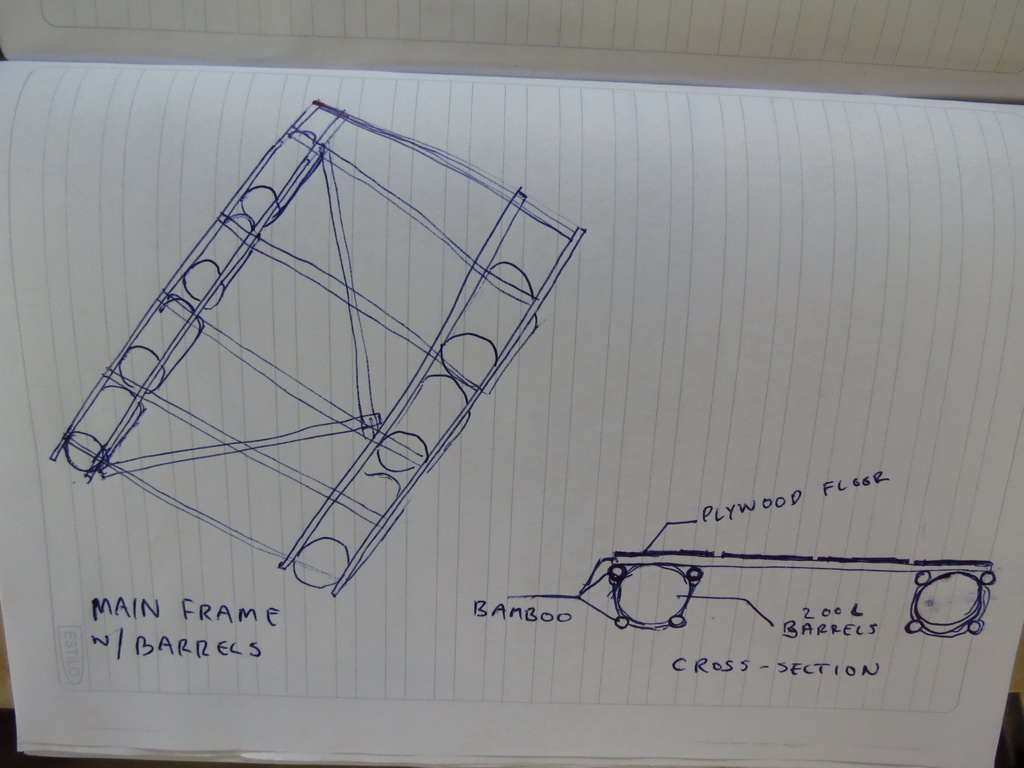 PLYWOOD FLOOR
BAMBOO
200L
BARRELS
CROSS-SECTION
MAIN FRAME
W/BARRELS
ESTILO